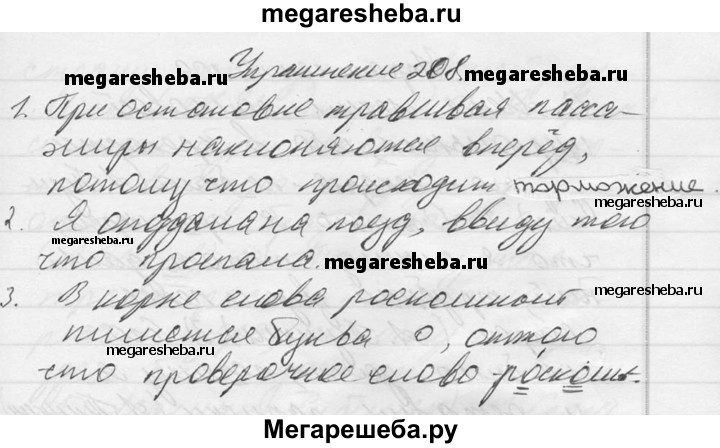 megaresheba.ru
Упражнение 208.
megaresheba.ru megaresheba.ru
1. При остановке трамвая пасса-
жиры наклоняются вперёд,
потому что происходит торможение.
megaresheba.ru
2. Я опоздала на поезд, ввиду того
megaresheba.ru
что проспала. megaresheba.ru
3. В корне слова роскошный
megaresheba.ru
пишется буква о, оттого
megaresheba.ru
что проверочное слово - роскошь.
megaresheba.ru
Мегарешеба.ру